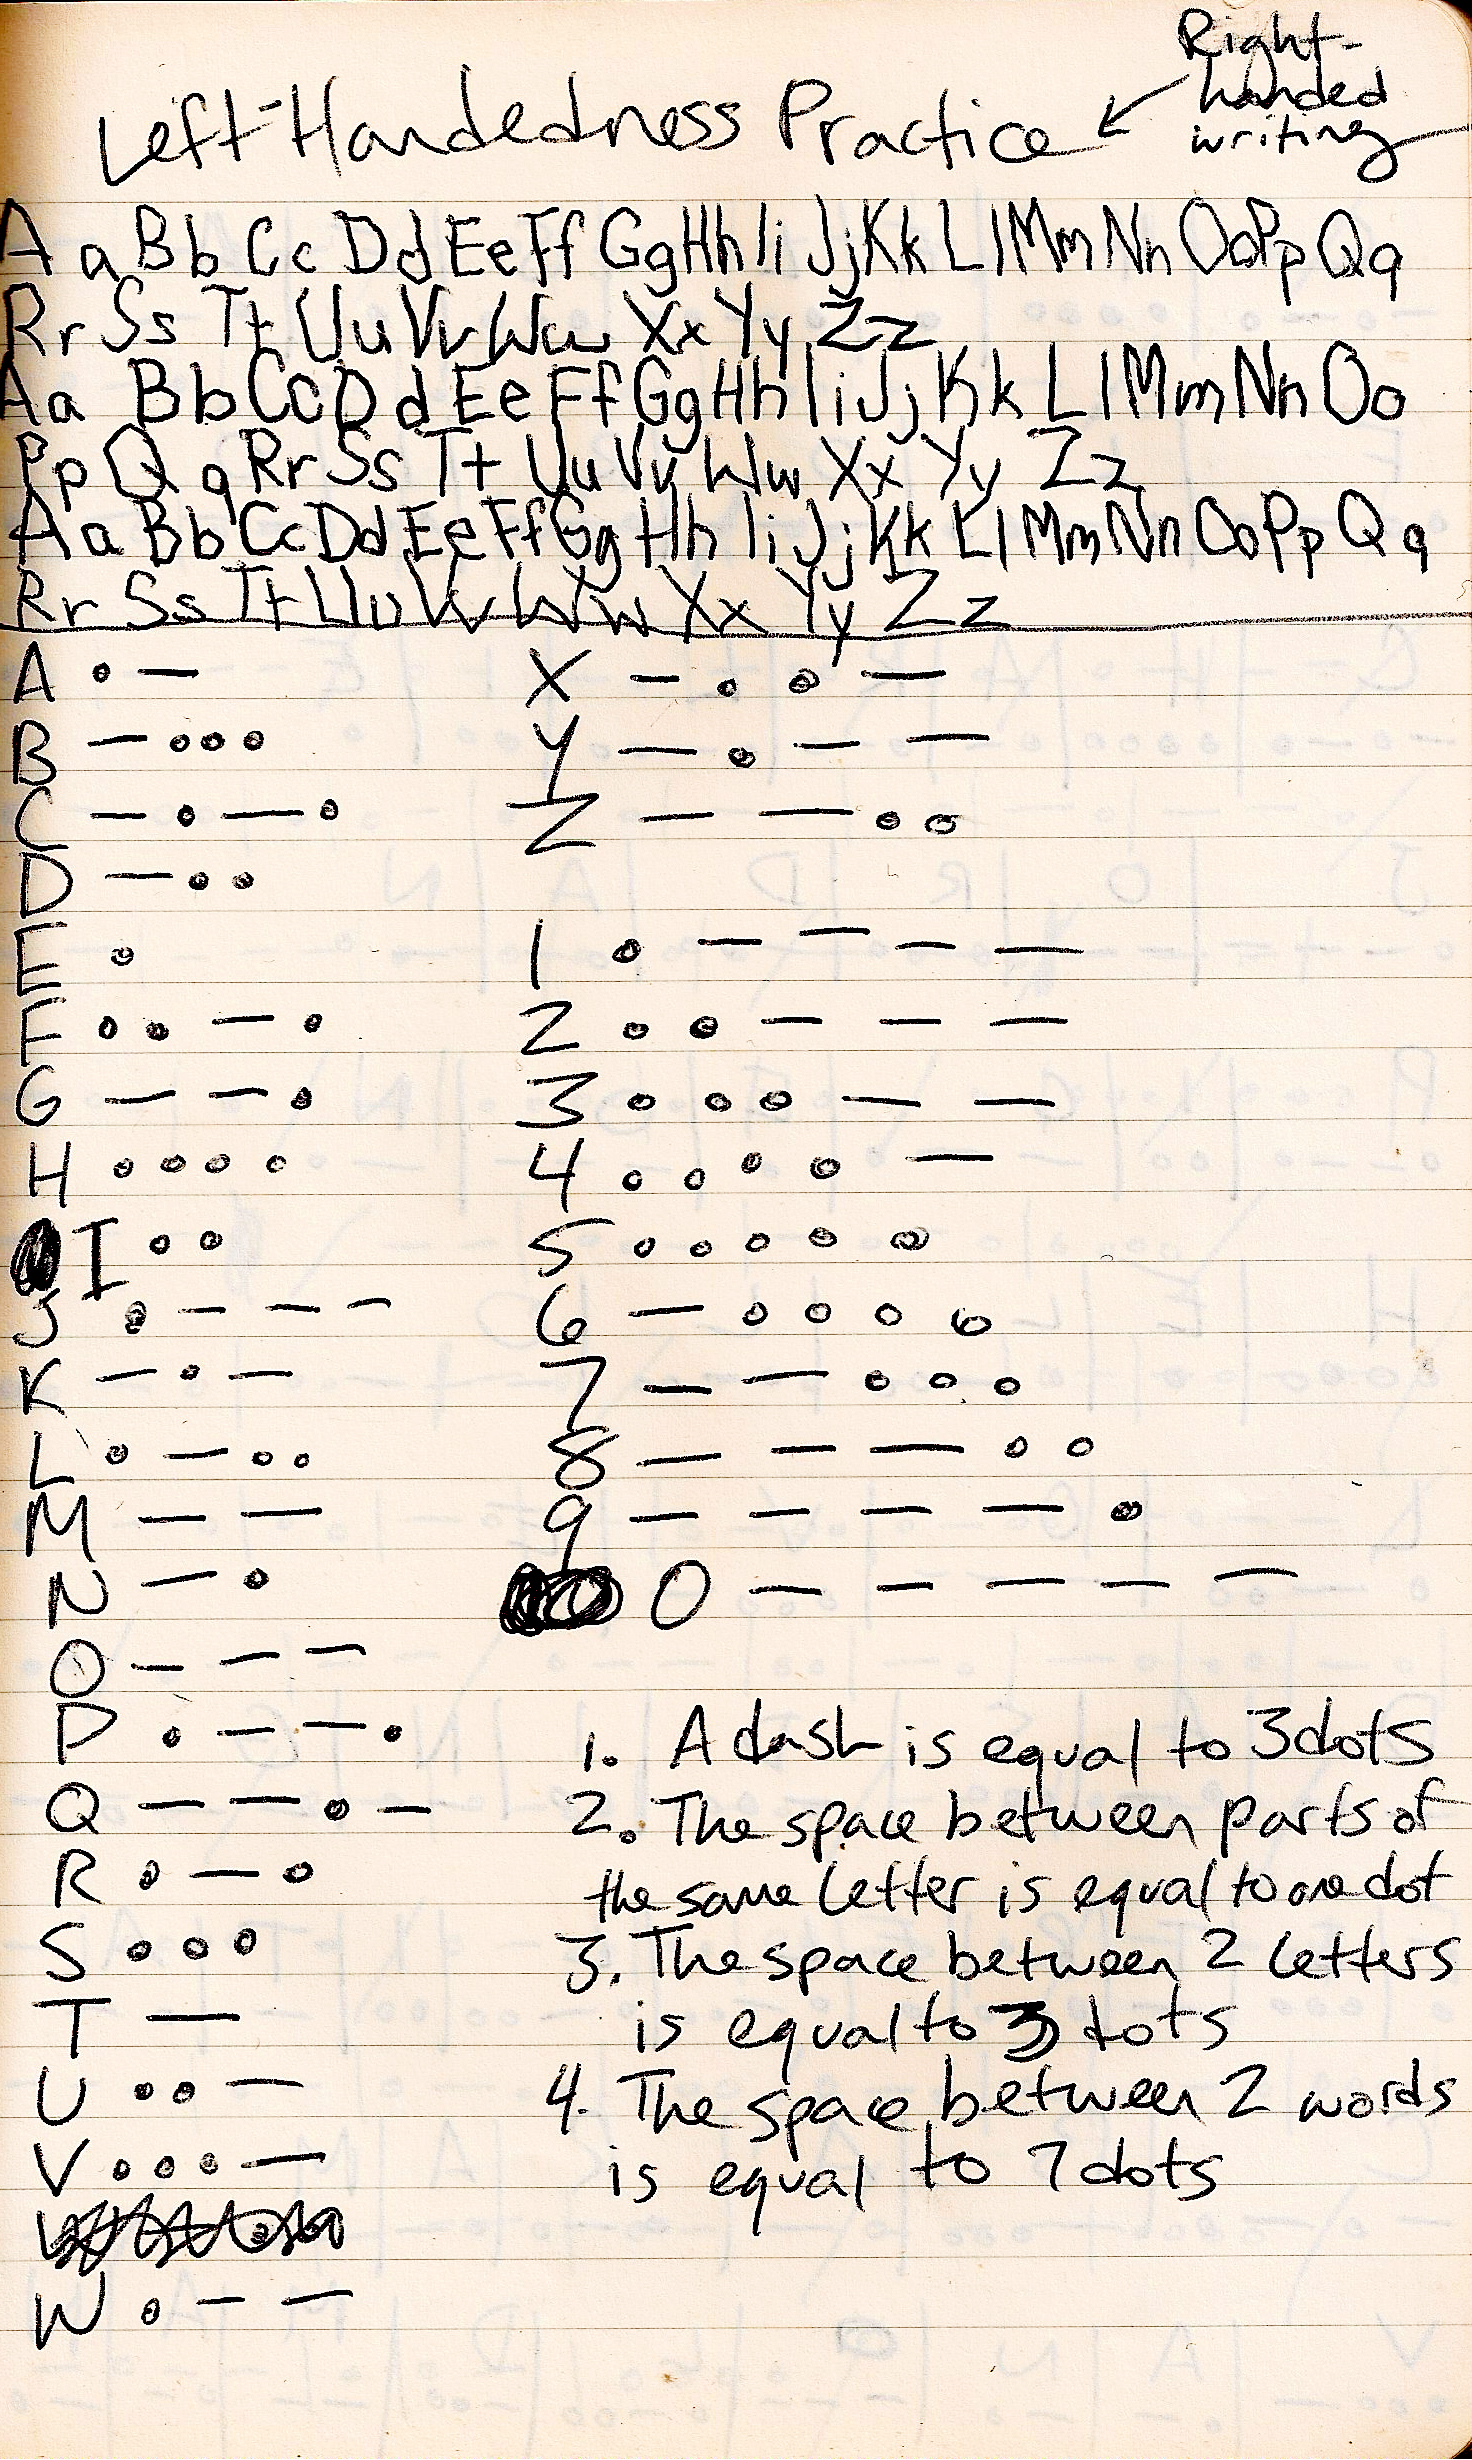 Right-
handed
writing
Left-Handedness Practice
Aa Bb Cc Dd Ee Ff Gg Hh Ii Jj Kk Ll Mm Nn Oo Pp Qq
Rr Ss Tt Uu Vv Ww Xx Yy Zz
Aa Bb Cc Dd Ee Ff Gg Hh Ii Jj Kk Ll Mm Nn Oo
Pp Qq Rr Ss Tt Uu Vv Ww Xx Yy Zz
Aa Bb Cc Dd Ee Ff Gg Hh Ii Jj Kk Ll Mm Nn Oo Pp Qq
Rr Ss Tt Uu Vv Ww Xx Yy Zz
A • —
B — • • •
C — • — •
D — • •
E •
F • • — •
G — — •
H • • • •
I • •
J • — — —
K — • —
L • — • •
M — —
N — •
O — — —
P • — — •
Q — — • —
R • — •
S • • •
T —
U • • —
V • • • —
W • — —
X — • • —
Y — • — —
Z — — • •
1 • — — — —
2 • • — — —
3 • • • — —
4 • • • • —
5 • • • • •
6 — • • • •
7 — — • • •
8 — — — • •
9 — — — — •
0 — — — — —
1. A dash is equal to 3 dots
2. The space between parts of
the same letter is equal to one dot
3. The space between 2 letters
is equal to 3 dots
4. The space between 2 words
is equal to 7 dots